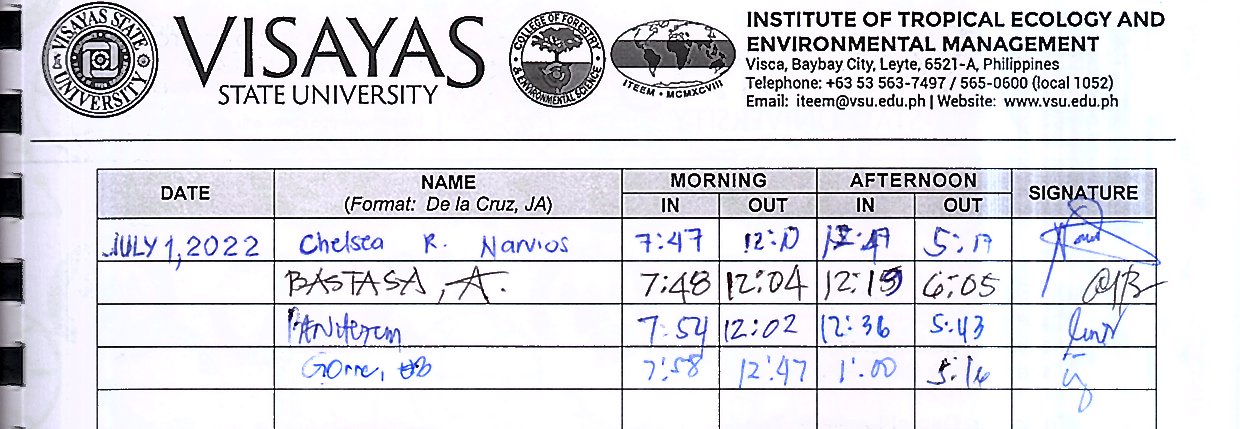 VISAYAS STATE UNIVERSITY
VISAYAS
STATE UNIVERSITY
COLLEGE OF FORESTRY
& ENVIRONMENTAL SCIENCE
ITEEM • MCMXCVIII
INSTITUTE OF TROPICAL ECOLOGY AND
ENVIRONMENTAL MANAGEMENT
Visca, Baybay City, Leyte, 6521-A, Philippines
Telephone: +63 53 563-7497 / 565-0600 (local 1052)
Email: iteem@vsu.edu.ph | Website: www.vsu.edu.ph
DATE NAME MORNING AFTERNOON SIGNATURE
(Format: De la Cruz, JA) IN OUT IN OUT
JULY 1, 2022 Chelsea R. Narvios 7:47 12:17 5:17
BASTASA, A. 7:48 12:04 12:15 6:05
7:54 12:02 12:36 5:43
Gorre, 7:58 12:47 1:00 5:16